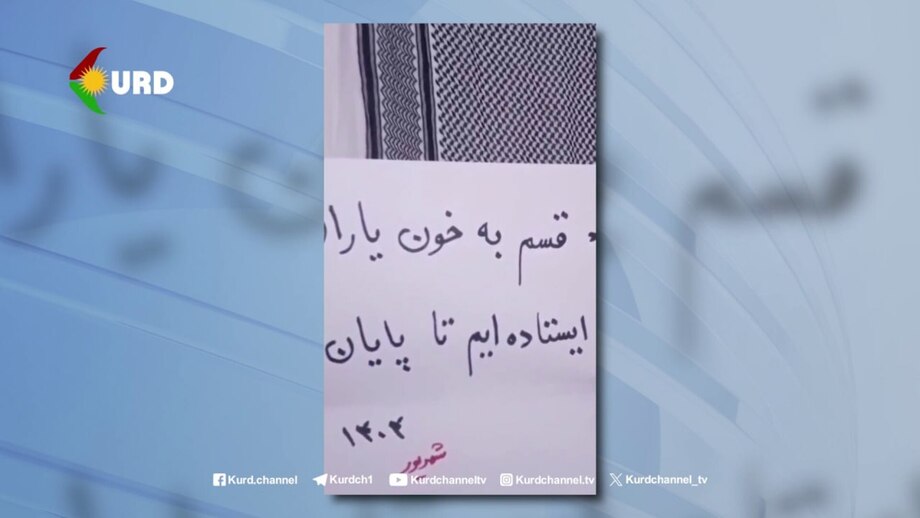 KURD
قسم به خون یارا
ایستاده ایم تا پایان
۱۴۰۴
شهریور
Kurd.channel Kurdch1 Kurdchanneltv Kurdchannel.tv Kurdchannel_tv